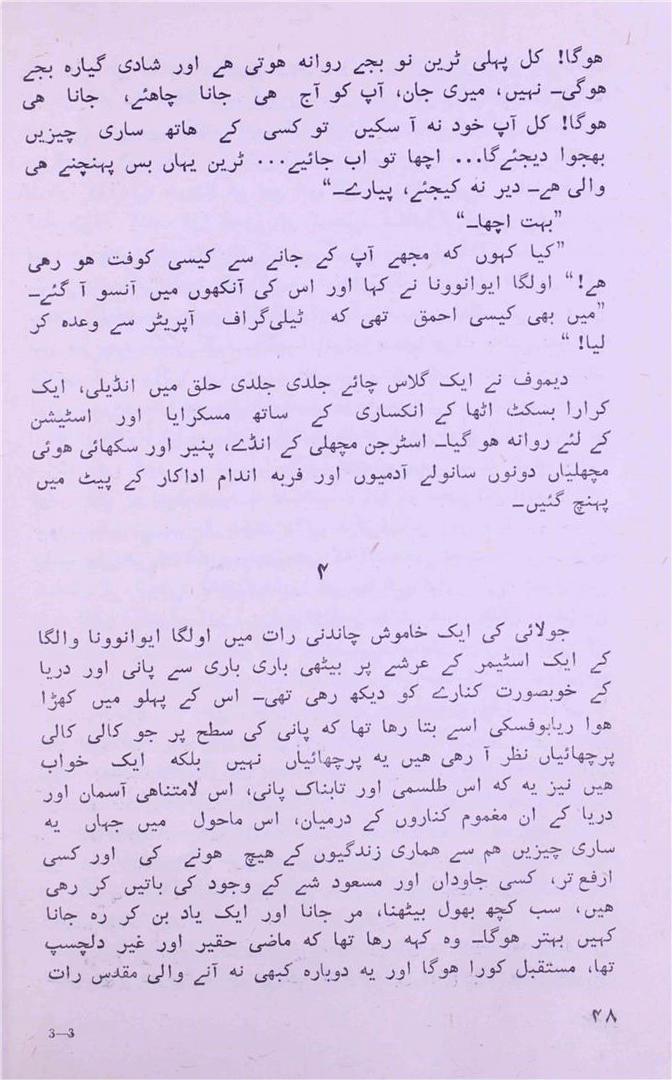 ہوگا! کل پہلی ٹرین نو بجے روانہ ہوتی ہے اور شادی گیارہ بجے
ہوگی۔ نہیں، میری جان، آپ کو آج ہی جانا چاہئے، جانا ہی
ہوگا! کل آپ خود نہ آ سکیں تو کسی کے ہاتھ ساری چیزیں
بھجوا دیجئےگا... اچھا تو اب جائیے... ٹرین یہاں بس پہنچنے ہی
والی ہے۔ دیر نہ کیجئے، پیارے۔“
”بہت اچھا۔“
”کیا کہوں کہ مجھے آپ کے جانے سے کیسی کوفت ہو رہی
ہے!“ اولگا ایوانوونا نے کہا اور اس کی آنکھوں میں آنسو آ گئے۔
”میں بھی کیسی احمق تھی کہ ٹیلیگراف آپریٹر سے وعدہ کر
لیا!“
دیموف نے ایک گلاس چائے جلدی جلدی حلق میں انڈیلی، ایک
کرارا بسکٹ اٹھا کے انکساری کے ساتھ مسکرایا اور اسٹیشن
کے لئے روانہ ہو گیا۔ اسٹرجن مچھلی کے انڈے، پنیر اور سکھائی ہوئی
مچھلیاں دونوں سانولے آدمیوں اور فربہ اندام اداکار کے پیٹ میں
پہنچ گئیں۔
۴
جولائی کی ایک خاموش چاندنی رات میں اولگا ایوانوونا والگا
کے ایک اسٹیمر کے عرشے پر بیٹھی باری باری سے پانی اور دریا
کے خوبصورت کنارے کو دیکھ رہی تھی۔ اس کے پہلو میں کھڑا
ہوا ریابوفسکی اسے بتا رہا تھا کہ پانی کی سطح پر جو کالی کالی
پرچھائیاں نظر آ رہی ہیں یہ پرچھائیاں نہیں بلکہ ایک خواب
ہیں نیز یہ کہ اس طلسمی اور تابناک پانی، اس لامتناہی آسمان اور
دریا کے ان مغموم کناروں کے درمیان، اس ماحول میں جہاں یہ
ساری چیزیں ہم سے ہماری زندگیوں کے ہیچ ہونے کی اور کسی
ارفع تر، کسی جاوداں اور مسعود شے کے وجود کی باتیں کر رہی
ہیں، سب کچھ بھول بیٹھنا، مر جانا اور ایک یاد بن کر رہ جانا
کہیں بہتر ہوگا۔ وہ کہہ رہا تھا کہ ماضی حقیر اور غیر دلچسپ
تھا، مستقبل کورا ہوگا اور یہ دوبارہ کبھی نہ آنے والی مقدس رات
۴۸
3—3